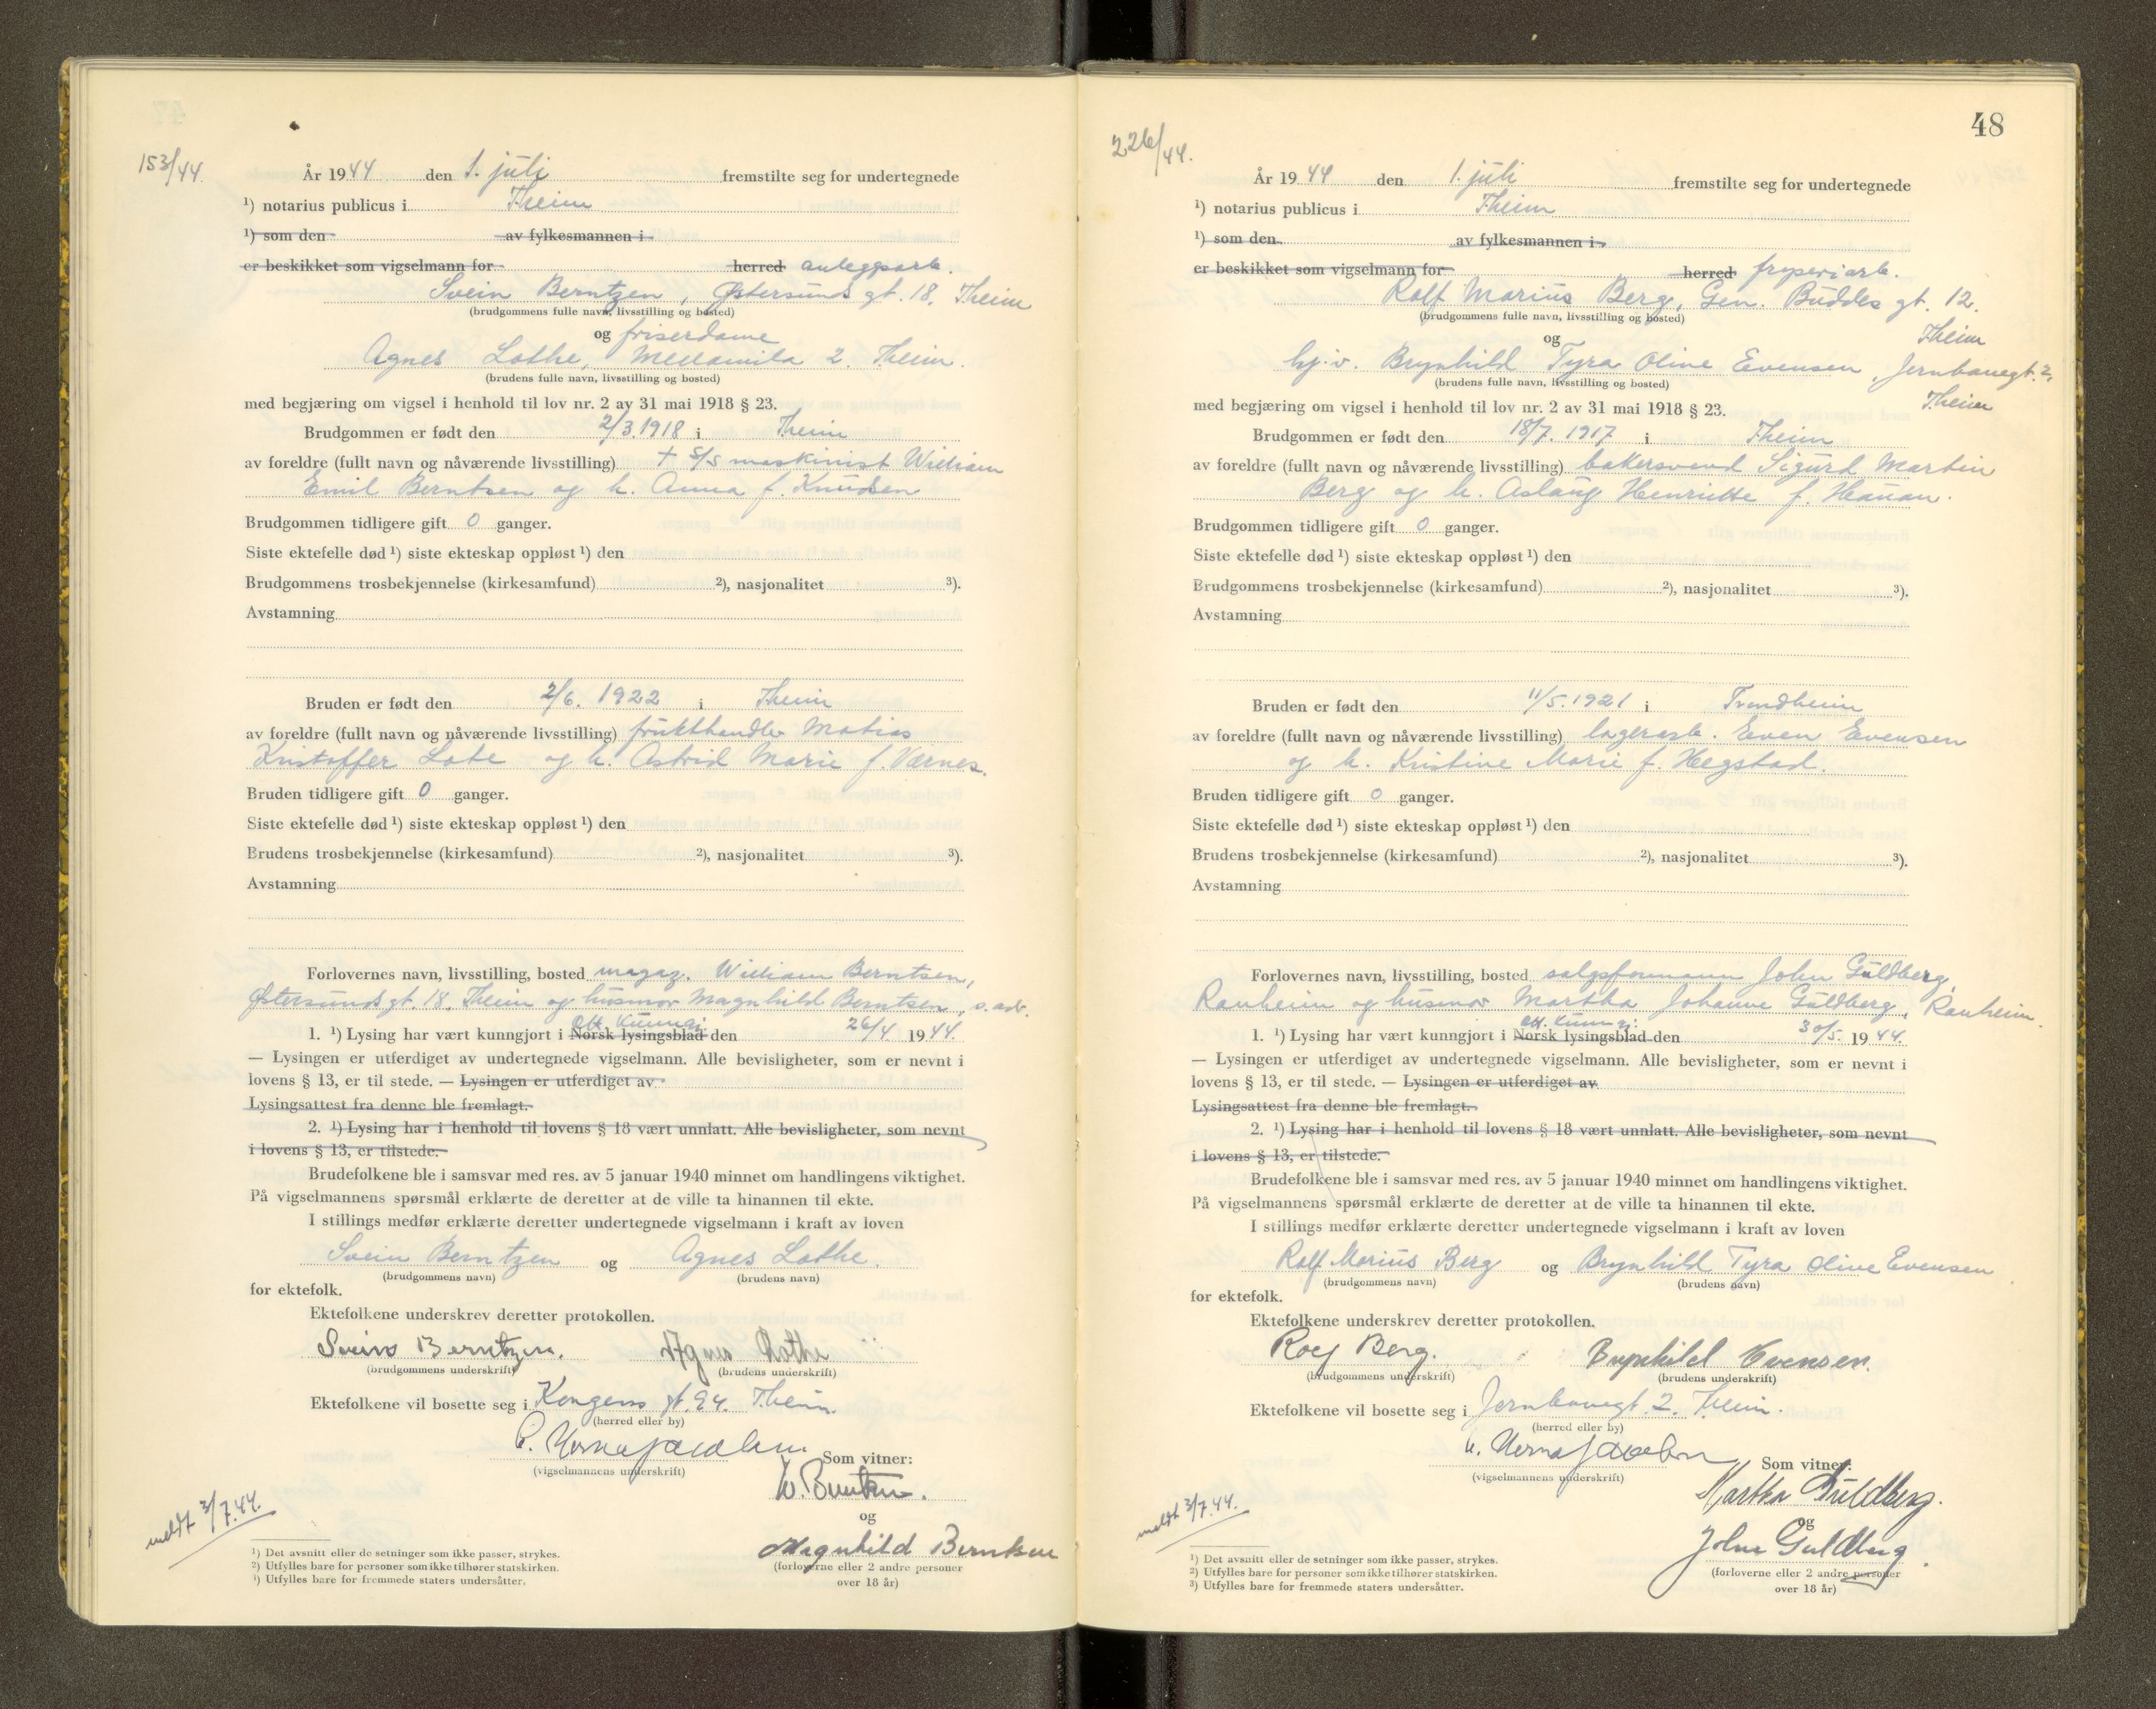 153/44.
År 1944 den 1. juli fremstilte seg for undertegnede
¹) notarius publicus i Theim
¹) som den av fylkesmannen i
er beskikket som vigselmann for herred anleggsarb.
Svein Berntzen, Østersunds gt. 18. Theim
(brudgommens fulle navn, livsstilling og bosted)
og friserdame
Agnes Lothe, Mellamila 2. Theim.
(brudens fulle navn, livsstilling og bosted)
med begjæring om vigsel i henhold til lov nr. 2 av 31 mai 1918 § 23.
Brudgommen er født den 2/3.1918 i Theim
av foreldre (fullt navn og nåværende livsstilling) + s/s maskinist William
Emil Berntsen og h. Anna f. Knudsen
Brudgommen tidligere gift 0 ganger.
Siste ektefelle død ¹) siste ekteskap oppløst ¹) den
Brudgommens trosbekjennelse (kirkesamfund) ²), nasjonalitet ³).
Avstamning
Bruden er født den 2/6. 1922 i Theim
av foreldre (fullt navn og nåværende livsstilling) frukthandler Matias
Kristoffer Lote og h. Astrid Marie f. Værnes.
Bruden tidligere gift 0 ganger.
Siste ektefelle død ¹) siste ekteskap oppløst ¹) den
Brudens trosbekjennelse (kirkesamfund) ²), nasjonalitet ³).
Avstamning
Forlovernes navn, livsstilling, bosted magaz. William Berntsen,
Østersunds gt. 18. Theim og husmor Magnhild Berntsen, s. adr.
off. kunngj.
1. ¹) Lysing har vært kunngjort i Norsk lysingsblad den 26/4. 1944.
— Lysingen er utferdiget av undertegnede vigselmann. Alle bevisligheter, som er nevnt i
lovens § 13, er til stede. — Lysingen er utferdiget av
Lysingsattest fra denne ble fremlagt.
2. ¹) Lysing har i henhold til lovens § 18 vært unnlatt. Alle bevisligheter, som nevnt
i lovens § 13, er tilstede.
Brudefolkene ble i samsvar med res. av 5 januar 1940 minnet om handlingens viktighet.
På vigselmannens spørsmål erklærte de deretter at de ville ta hinannen til ekte.
I stillings medfør erklærte deretter undertegnede vigselmann i kraft av loven
Svein Berntzen og Agnes Lothe.
(brudgommens navn) (brudens navn)
for ektefolk.
Ektefolkene underskrev deretter protokollen.
Svein Berntzen. Agnes Lothe
(brudgommens underskrift) (brudens underskrift)
Ektefolkene vil bosette seg i Kongens gt. 94. Theim.
(herred eller by)
(vigselmannens underskrift) Som vitner:
W. Berntsen.
og
Magnhild Berntsen
(forloverne eller 2 andre personer
over 18 år)
meldt 3/7.44.
¹) Det avsnitt eller de setninger som ikke passer, strykes.
²) Utfylles bare for personer som ikke tilhører statskirken.
³) Utfylles bare for fremmede staters undersåtter.
48
226/44.
År 1944 den 1. juli fremstilte seg for undertegnede
¹) notarius publicus i Theim
¹) som den av fylkesmannen i
er beskikket som vigselmann for herred
Rolf Marius Berg, Gen. Buddes gt. 12.
(brudgommens fulle navn, livsstilling og bosted) Theim
og
hj.v. Brynhild Tyra Oline Evensen, Jernbanegt. 2,
(brudens fulle navn, livsstilling og bosted) Theim
med begjæring om vigsel i henhold til lov nr. 2 av 31 mai 1918 § 23.
Brudgommen er født den 18/7. 1917 i Theim
av foreldre (fullt navn og nåværende livsstilling) bakersvend Sigurd Martin
Berg og h. Aslaug Henriette f. Hanan.
Brudgommen tidligere gift 0 ganger.
Siste ektefelle død ¹) siste ekteskap oppløst ¹) den
Brudgommens trosbekjennelse (kirkesamfund) ²), nasjonalitet ³).
Avstamning
Bruden er født den 11/5.1921 i Trondheim
av foreldre (fullt navn og nåværende livsstilling) lagerarb. Even Evensen
og h. Kristine Marie f. Hegstad.
Bruden tidligere gift 0 ganger.
Siste ektefelle død ¹) siste ekteskap oppløst ¹) den
Brudens trosbekjennelse (kirkesamfund) ²), nasjonalitet ³).
Avstamning
Forlovernes navn, livsstilling, bosted salgsformann John Guldberg,
Ranheim og husmor Martha Johanne Guldberg, Ranheim.
off. kunngj.
1. ¹) Lysing har vært kunngjort i Norsk lysingsblad den 30/5. 1944.
— Lysingen er utferdiget av undertegnede vigselmann. Alle bevisligheter, som er nevnt i
lovens § 13, er til stede. — Lysingen er utferdiget av
Lysingsattest fra denne ble fremlagt.
2. ¹) Lysing har i henhold til lovens § 18 vært unnlatt. Alle bevisligheter, som nevnt
i lovens § 13, er tilstede.
Brudefolkene ble i samsvar med res. av 5 januar 1940 minnet om handlingens viktighet.
På vigselmannens spørsmål erklærte de deretter at de ville ta hinannen til ekte.
I stillings medfør erklærte deretter undertegnede vigselmann i kraft av loven
Rolf Marius Berg og Brynhild Tyra Oline Evensen
(brudgommens navn) (brudens navn)
for ektefolk.
Ektefolkene underskrev deretter protokollen.
Rolf Berg. Brynhild Evensen.
(brudgommens underskrift) (brudens underskrift)
Ektefolkene vil bosette seg i Jernbanegt. 2. Theim.
(herred eller by)
(vigselmannens underskrift) Som vitner:
Martha Guldberg.
og
John Guldberg.
(forloverne eller 2 andre personer
over 18 år)
meldt 3/7.44.
¹) Det avsnitt eller de setninger som ikke passer, strykes.
²) Utfylles bare for personer som ikke tilhører statskirken.
³) Utfylles bare for fremmede staters undersåtter.